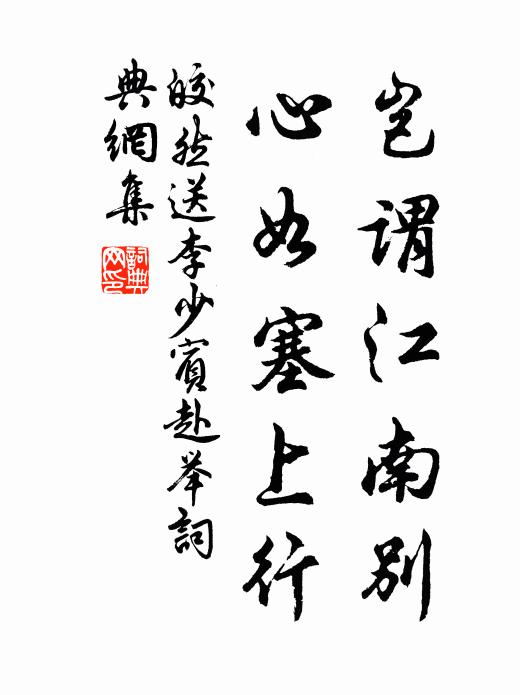 岂謂江南别
心如塞上行
皎然送李少賓赴举詞
典網集
詞典网印